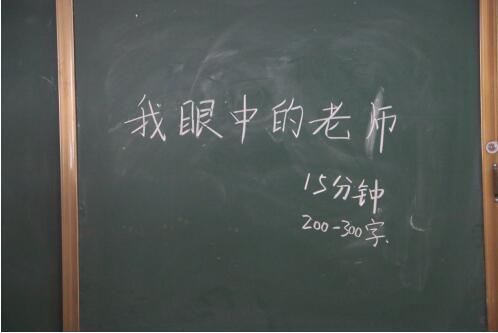 我眼中的老师
15分钟
200-300字.